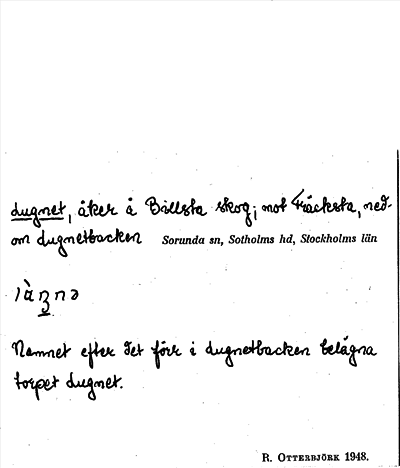 Lugnet, åker å Billsta skog, mot ned-
om Lugnetbacken Sorunda sn, Sotholms hd, Stockholms län
Namnet efter det förr i Lugnetbacken belägna
torpet Lugnet.
R. OTTERBJÖRK 1948.